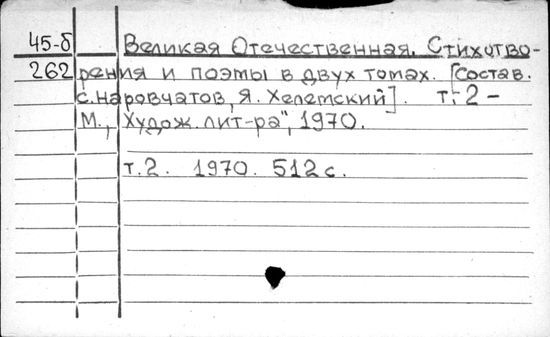 45-б Великая Отечественная. Стихотво-
262 рения и поэты в двух томах. [Состав.
С. Наровчатов, Я. Хелемский]. т. 2 –
М., Худож. лит-ра", 1970.
т. 2. 1970. 512 с.